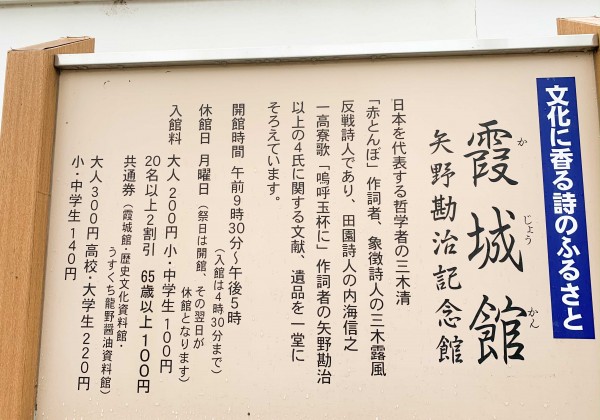 文化に香る詩のふるさと
霞城館
か じょう かん
矢野勘治記念館
日本を代表する哲学者の三木清
「赤とんぼ」作詞者、象徴詩人の三木露風
反戦詩人であり、田園詩人の内海信之
一高寮歌「嗚呼玉杯に」作詞者の矢野勘治
以上の4氏に関する文献、遺品を一堂に
そろえています。
開館時間 午前9時30分〜午後5時
(入館は4時30分まで)
休館日 月曜日(祭日は開館、その翌日が
休館となります)
入館料 大人200円 小・中学生100円
20名以上2割引 65歳以上100円
共通券(霞城館・歴史文化資料館・
うすくち龍野醤油資料館)
大人300円 高校・大学生220円
小・中学生140円